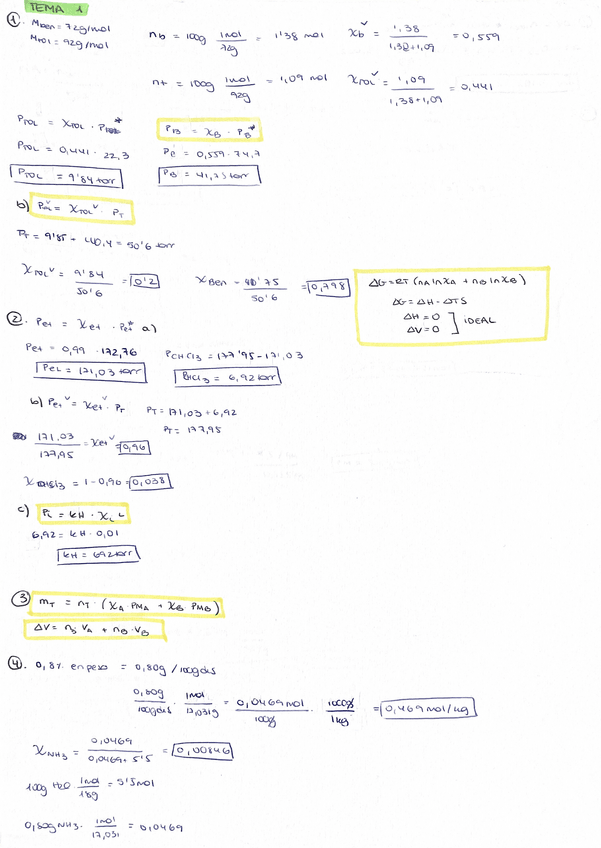 TEMA 1
① Mben = 72g/mol
Mtol = 92g/mol
nb = 100g 1mol/72g = 1'38 mol
χb^v = 1,38/(1,38+1,09) = 0,559
nt = 100g 1mol/92g = 1,09 mol
χTOL^v = 1,09/(1,38+1,09) = 0,441
PTOL = χTOL · P*
PTOL = 0,441 · 22,3
PTOL = 9'84 torr
PB = χB · PB*
= 0,559 · 74,7
PB = 41,73 torr
b) = χTOL^v · PT
PT = 9'85 + 40,4 = 50'6 torr
χTOL^v = 9'84/50'6 = 0'2
χBen = 40'75/50'6 = 0,798
ΔG = RT (nA lnχA + nB lnχB)
ΔG = ΔH - ΔTS
ΔH = 0
ΔV = 0 ] IDEAL
② Pet = χet · Pet* a)
Pet = 0,99 · 172,76
Pet = 171,03 torr
PCHCl3 = 177'95 - 171,03
= 6,92 torr
b) Pet^v = χet^v · PT
PT = 171,03 + 6,92
PT = 177,95
171,03/177,95 = χet^v = 0,96
= 1 - 0,96 = 0,038
c) PL = kH · χL
6,92 = kH · 0,01
kH = 692 torr
③ mT = nT · (χA · PMA + χB · PMB)
ΔV = · VA + nB · VB
④. 0,8% en peso = 0,80g / 100g dis
0,80g/100g dis · 1mol/17,031g = 0,0469 mol/100g · 1000g/1kg = 0,469 mol/kg
χNH3 = 0,0469/(0,0469 + 5'5) = 0,00846
100g H2O 1mol/18g = 5'5 mol
0,80g NH3 · 1mol/17,031 = 0,0469